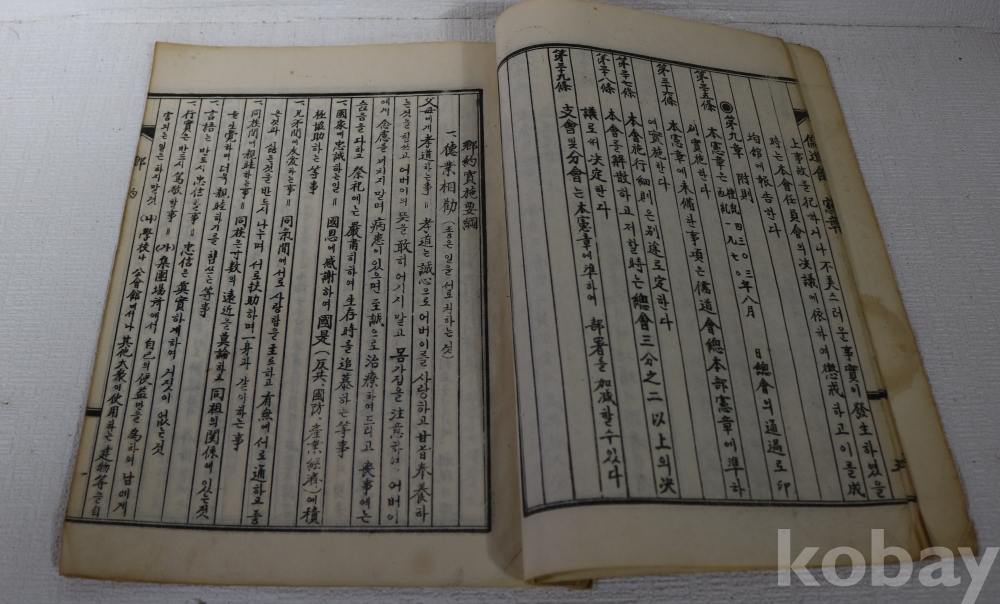 儒道會 憲章
上事故를 犯하거나 不美스러운 事實이 發生하였을
時는 本會任員會의 決議에 依하여 懲戒하고 이를 成
均舘에 報告한다
◉第九章 附則
本憲章은 檀紀四三〇三年八月 日 總會의 通過로 即
西紀一九七〇
刻實施한다
第三五條
本憲章에 未備한 事項은 儒道會總本部憲章에 準하
여 實施한다
第三六條
本會施行細則은 別途로 定한다
第三七條
本會를 解散하고저 할時는 總會三分之二以上의 決
議로써 決定한다
第三八條
支會 및 分會는 本憲章에 準하여 部署를 加減할수있다
第三九條
鄕約實施要綱
一、德業相勸 (좋은 일을 서로 권하는 것)
父母에게 孝道하는 事＝孝道는 誠心으로 어버이를 사랑하고 甘旨奉養하
는 것을 힘쓰고 어버이의 뜻을 敢히 어기지 말고 몸가짐을 注意하여 어버이
에게 念慮를 끼치지 말며 病患이 있으면 至誠으로 治療하여드리고 喪事에는
을 다하고 祭祀에는 嚴肅히하여 生存時를 追慕하는 等事
一、國家에 忠誠하는 일＝國恩에 感謝하여 國是(反共、國防、產業經濟)에 積
極協助하는 等事
一、兄弟間에 友愛하는 事＝同氣間에 서로 사랑함을 主로하고 有無에 서로 通하고 좋
은것과 싫은것을 반드시 나누며 서로 扶助하며 一身과 같이하는 事
一、同族間에 親睦하는 事＝同族은 寸數의 遠近을 莫論하고 同祖의 關係에 있는 것
을 生覺하여 더욱 親睦하기를 힘쓰는 等事
一、言語는 반드시 忠信한 事＝忠信은 眞實하게하여 거짓이 없는 것
一、行實은 반드시 篤敬할 事＝(가) 集團場所에서 自己의 便益만을 爲하여 남에게
害되는 일은 하지 말것 (나) 學校나 公會館에서나 其他 大衆이 使用하는 建物等을 더
一
kobay